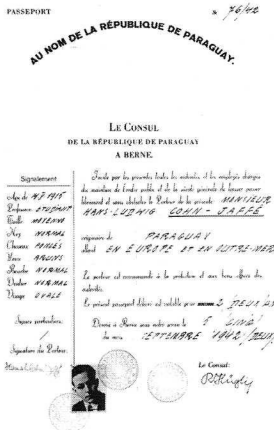 PASSEPORT
№ 76/42
AU NOM DE LA RÉPUBLIQUE DE PARAGUAY.
LE CONSUL
DE LA RÉPUBLIQUE DE PARAGUAY
A BERNE.
Signalement
Age de
Profession ETUDIANT
Taille MOYENNE
Nez NORMAL
Cheveux FONCÉS
Yeux BRUNS
Bouche NORMAL
Menton NORMAL
Visage OVALE
Signes particuliers:
/
Signature du Porteur:
Invite par les présentes toutes les autorités et les employés chargés
du maintien de l'ordre public et de la sûreté générale de laisser passer
librement et sans obstacles le Porteur de la présente MONSIEUR
HANS-LUDWIG COHN-JAFFÉ
originaire de PARAGUAY
allant EN EUROPE ET EN OUTRE-MER
Le porteur est recommandé à la protection et aux bons offices des
autorités.
Le présent passeport délivré est valable pour 2 DEUX ANS
Donné à Berne sous notre sceau le CINQ
du mois SEPTEMBRE 1942 /DEUX/
Le Consul:
R. Hügli